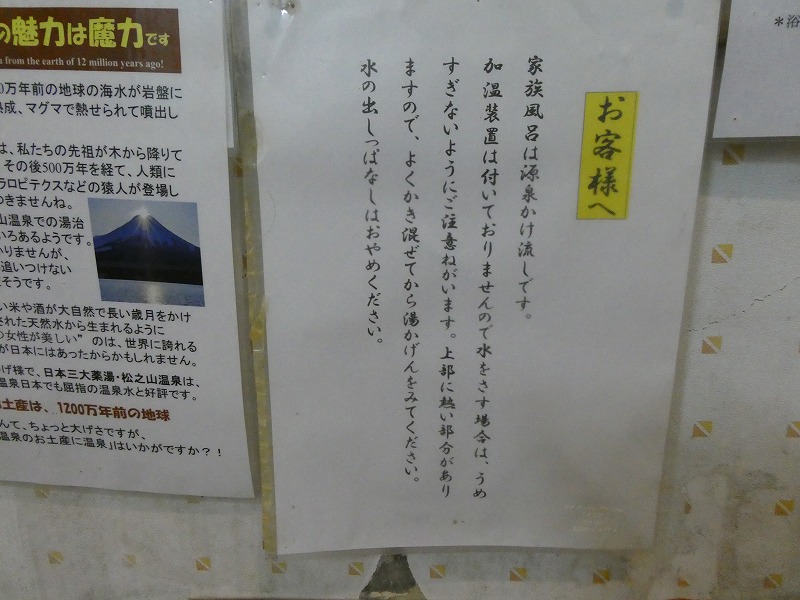 の魅力は魔力です
from the earth of 12 million years ago!
0万年前の地球の海水が岩盤に
熟成、マグマで熱せられて噴出し
は、私たちの先祖が木から降りて
その後500万年を経て、人類に
ラロピテクスなどの猿人が登場し
つきませんね。
山温泉での湯治
いろあるようです。
かりませんが、
追いつけない
そうです。
い米や酒が大自然で長い歳月をかけ
された天然水から生まれるように
の女性が美しい”のは、世界に誇れる
が日本にはあったからかもしれません。
げ様で、日本三大薬湯・松之山温泉は、
温泉日本でも屈指の温泉水と好評です。
土産は、1200万年前の地球
んて、ちょっと大げさですが、
温泉のお土産に温泉」はいかがですか？！
お客様へ
家族風呂は源泉かけ流しです。
加温装置は付いておりませんので水をさす場合は、うめ
すぎないようにご注意ねがいます。上部に熱い部分があり
ますので、よくかき混ぜてから湯かげんをみてください。
水の出しっぱなしはおやめください。
＊浴